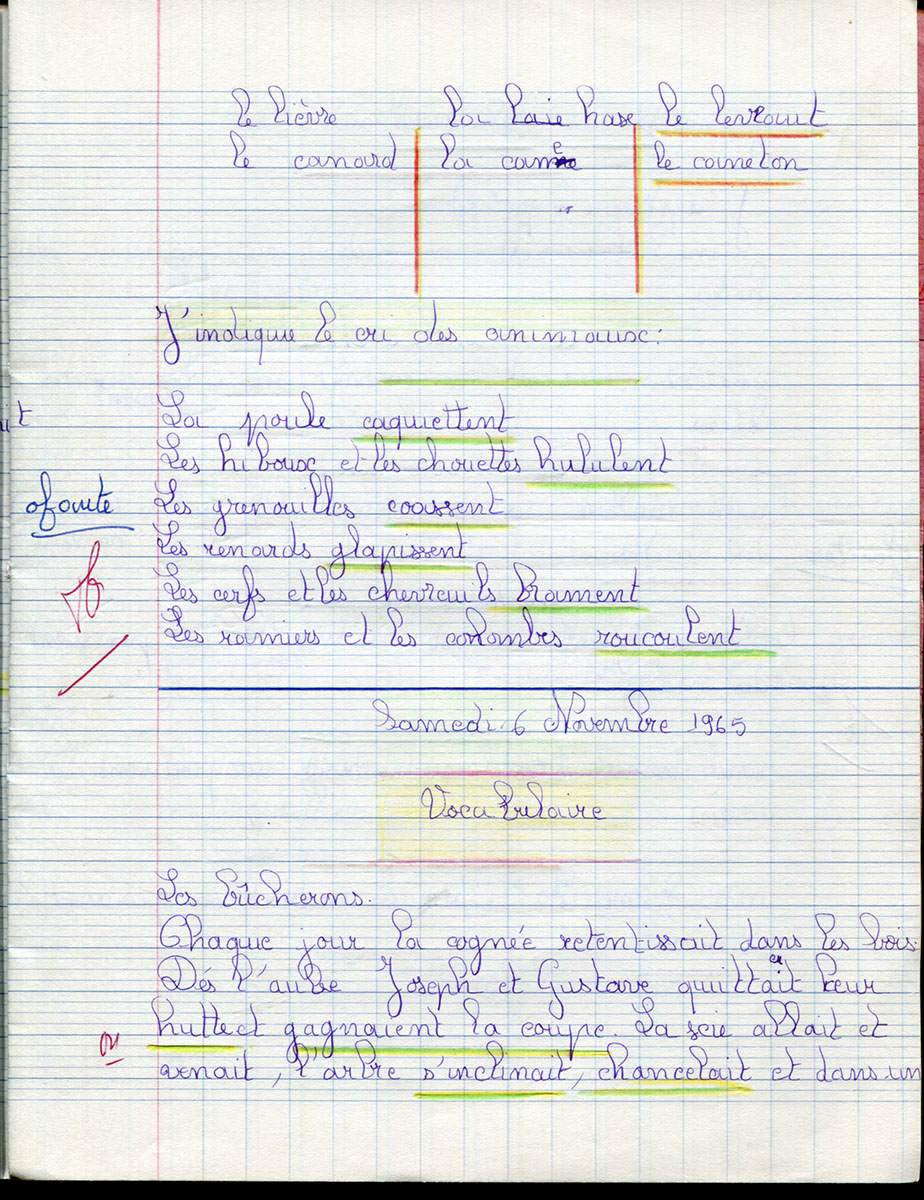 le lièvre la laie hase le levraut
le canard la cane le caneton
J'indique le cri des animaux:
La poule caquettent
Les hiboux et les chouettes hululent
Les grenouilles coassent
Les renards glapissent
Les cerfs et les chevreuils brament
Les ramiers et les colombes roucoulent
Samedi 6 Novembre 1965
Vocabulaire
Les bûcherons.
Chaque jour la cognée retentissait dans les bois
Dés l'aube Joseph et Gustave quittait leur
hutte et gagnaient la coupe. La scie allait et
venait, l'arbre s'inclinait, chancelait et dans un